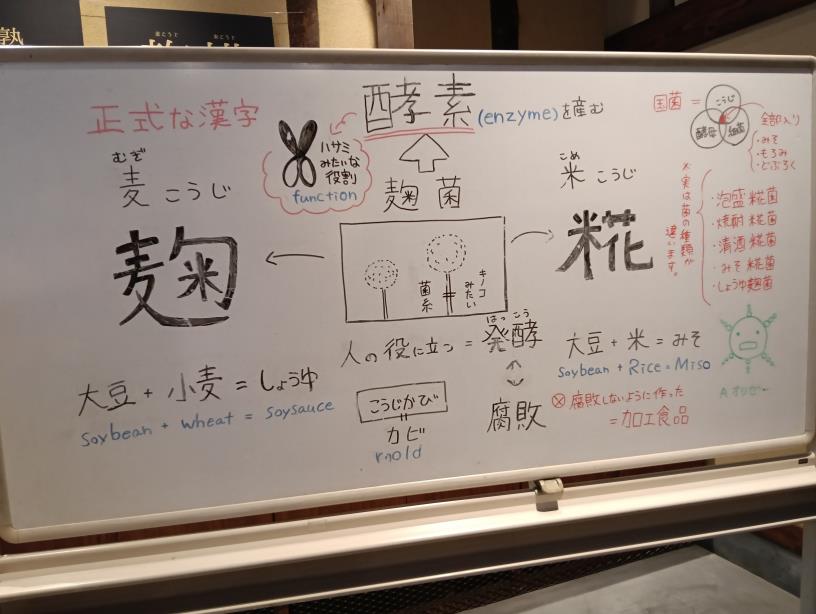 塾
正式な漢字
酵素(enzyme)を産む
ハサミ
みたいな
役割
function
国菌=
こうじ
酵母
細菌
全部入り
・みそ
・もろみ
・どぶろく
むぎ
麦こうじ
麹菌
こめ
米こうじ
麹
糀
菌糸
キノコ
みたい
※実は菌の種類が
違います。
・泡盛糀菌
・焼酎糀菌
・清酒糀菌
・みそ糀菌
・しょうゆ麹菌
人の役に立つ=発酵
はっこう
大豆+小麦=しょうゆ
soybean + wheat = soysauce
こうじかび
カビ
mold
腐敗
大豆+米=みそ
soybean + Rice = Miso
⊗腐敗しないように作った
=加工食品